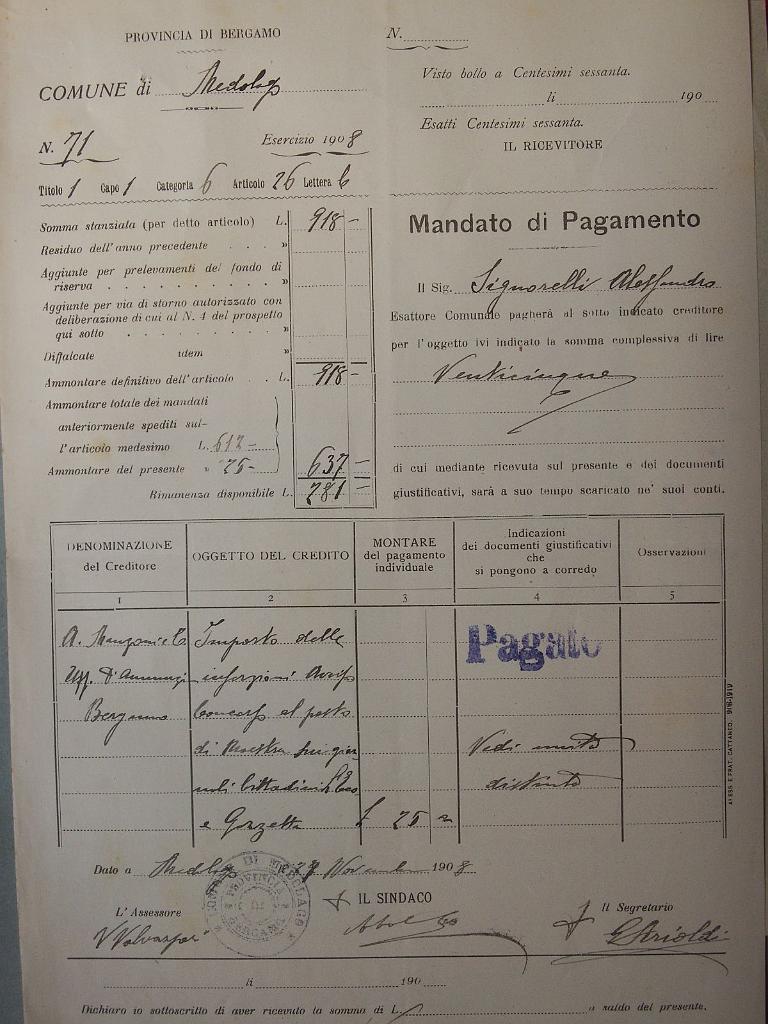 PROVINCIA DI BERGAMO
COMUNE di Medolago
N. 71
Esercizio 1908
Titolo 1 Capo 1 Categoria 6 Articolo 26 Lettera b
Somma stanziata (per detto articolo) L. 918 -
Residuo dell'anno precedente . . . »
Aggiunte per prelevamenti del fondo di
riserva . . . . . . . . . . »
Aggiunte per via di storno autorizzato con
deliberazione di cui al N. 4 del prospetto
qui sotto . . . . . . . . »
Diffalcate idem »
Ammontare definitivo dell'articolo . . L. 918 -
Ammontare totale dei mandati
anteriormente spediti sul-
l'articolo medesimo L. 612 -
Ammontare del presente » 25 - 637 -
Rimanenza disponibile L. 281 -
N.
Visto bollo a Centesimi sessanta.
li 190
Esatti Centesimi sessanta.
IL RICEVITORE
Mandato di Pagamento
Il Sig. Signorelli Alessandro
Esattore Comunale pagherà al sotto indicato creditore
per l'oggetto ivi indicato la somma complessiva di lire
Venticinque
di cui mediante ricevuta sul presente e dei documenti
giustificativi, sarà a suo tempo scaricato ne' suoi conti.
DENOMINAZIONE
del Creditore
OGGETTO DEL CREDITO
MONTARE
del pagamento
individuale
Indicazioni
dei documenti giustificativi
che
si pongono a corredo
Osservazioni
1 2 3 4 5
A. Manzoni e C
Uff. d'Annunzi
Bergamo
Importo delle
inserzioni Avviso
Concorso al posto
di Maestra sui gior
nali cittadini Eco
e Gazzetta
£ 25 -
Pagato
Vedi unita
distinta
ALESS. E FRAT. CATTANEO. 916-1919
Dato a Medolago li 29 Novembre 1908
COMUNE DI MEDOLAGO
PROVINCIA DI BERGAMO
L'Assessore
IL SINDACO
Il Segretario
G Arioldi
li 190
Dichiaro io sottoscritto di aver ricevuto la somma di L. a saldo del presente.